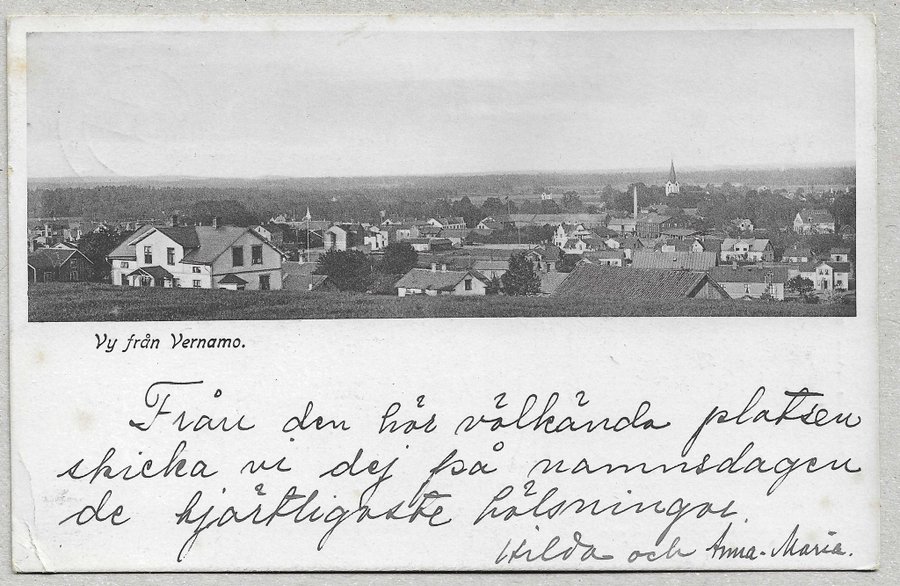 Vy från Vernamo.
Från den här välkända platsen
skicka vi dej på namnsdagen
de hjärtligaste hälsningar
Hilda och Anna-Maria.